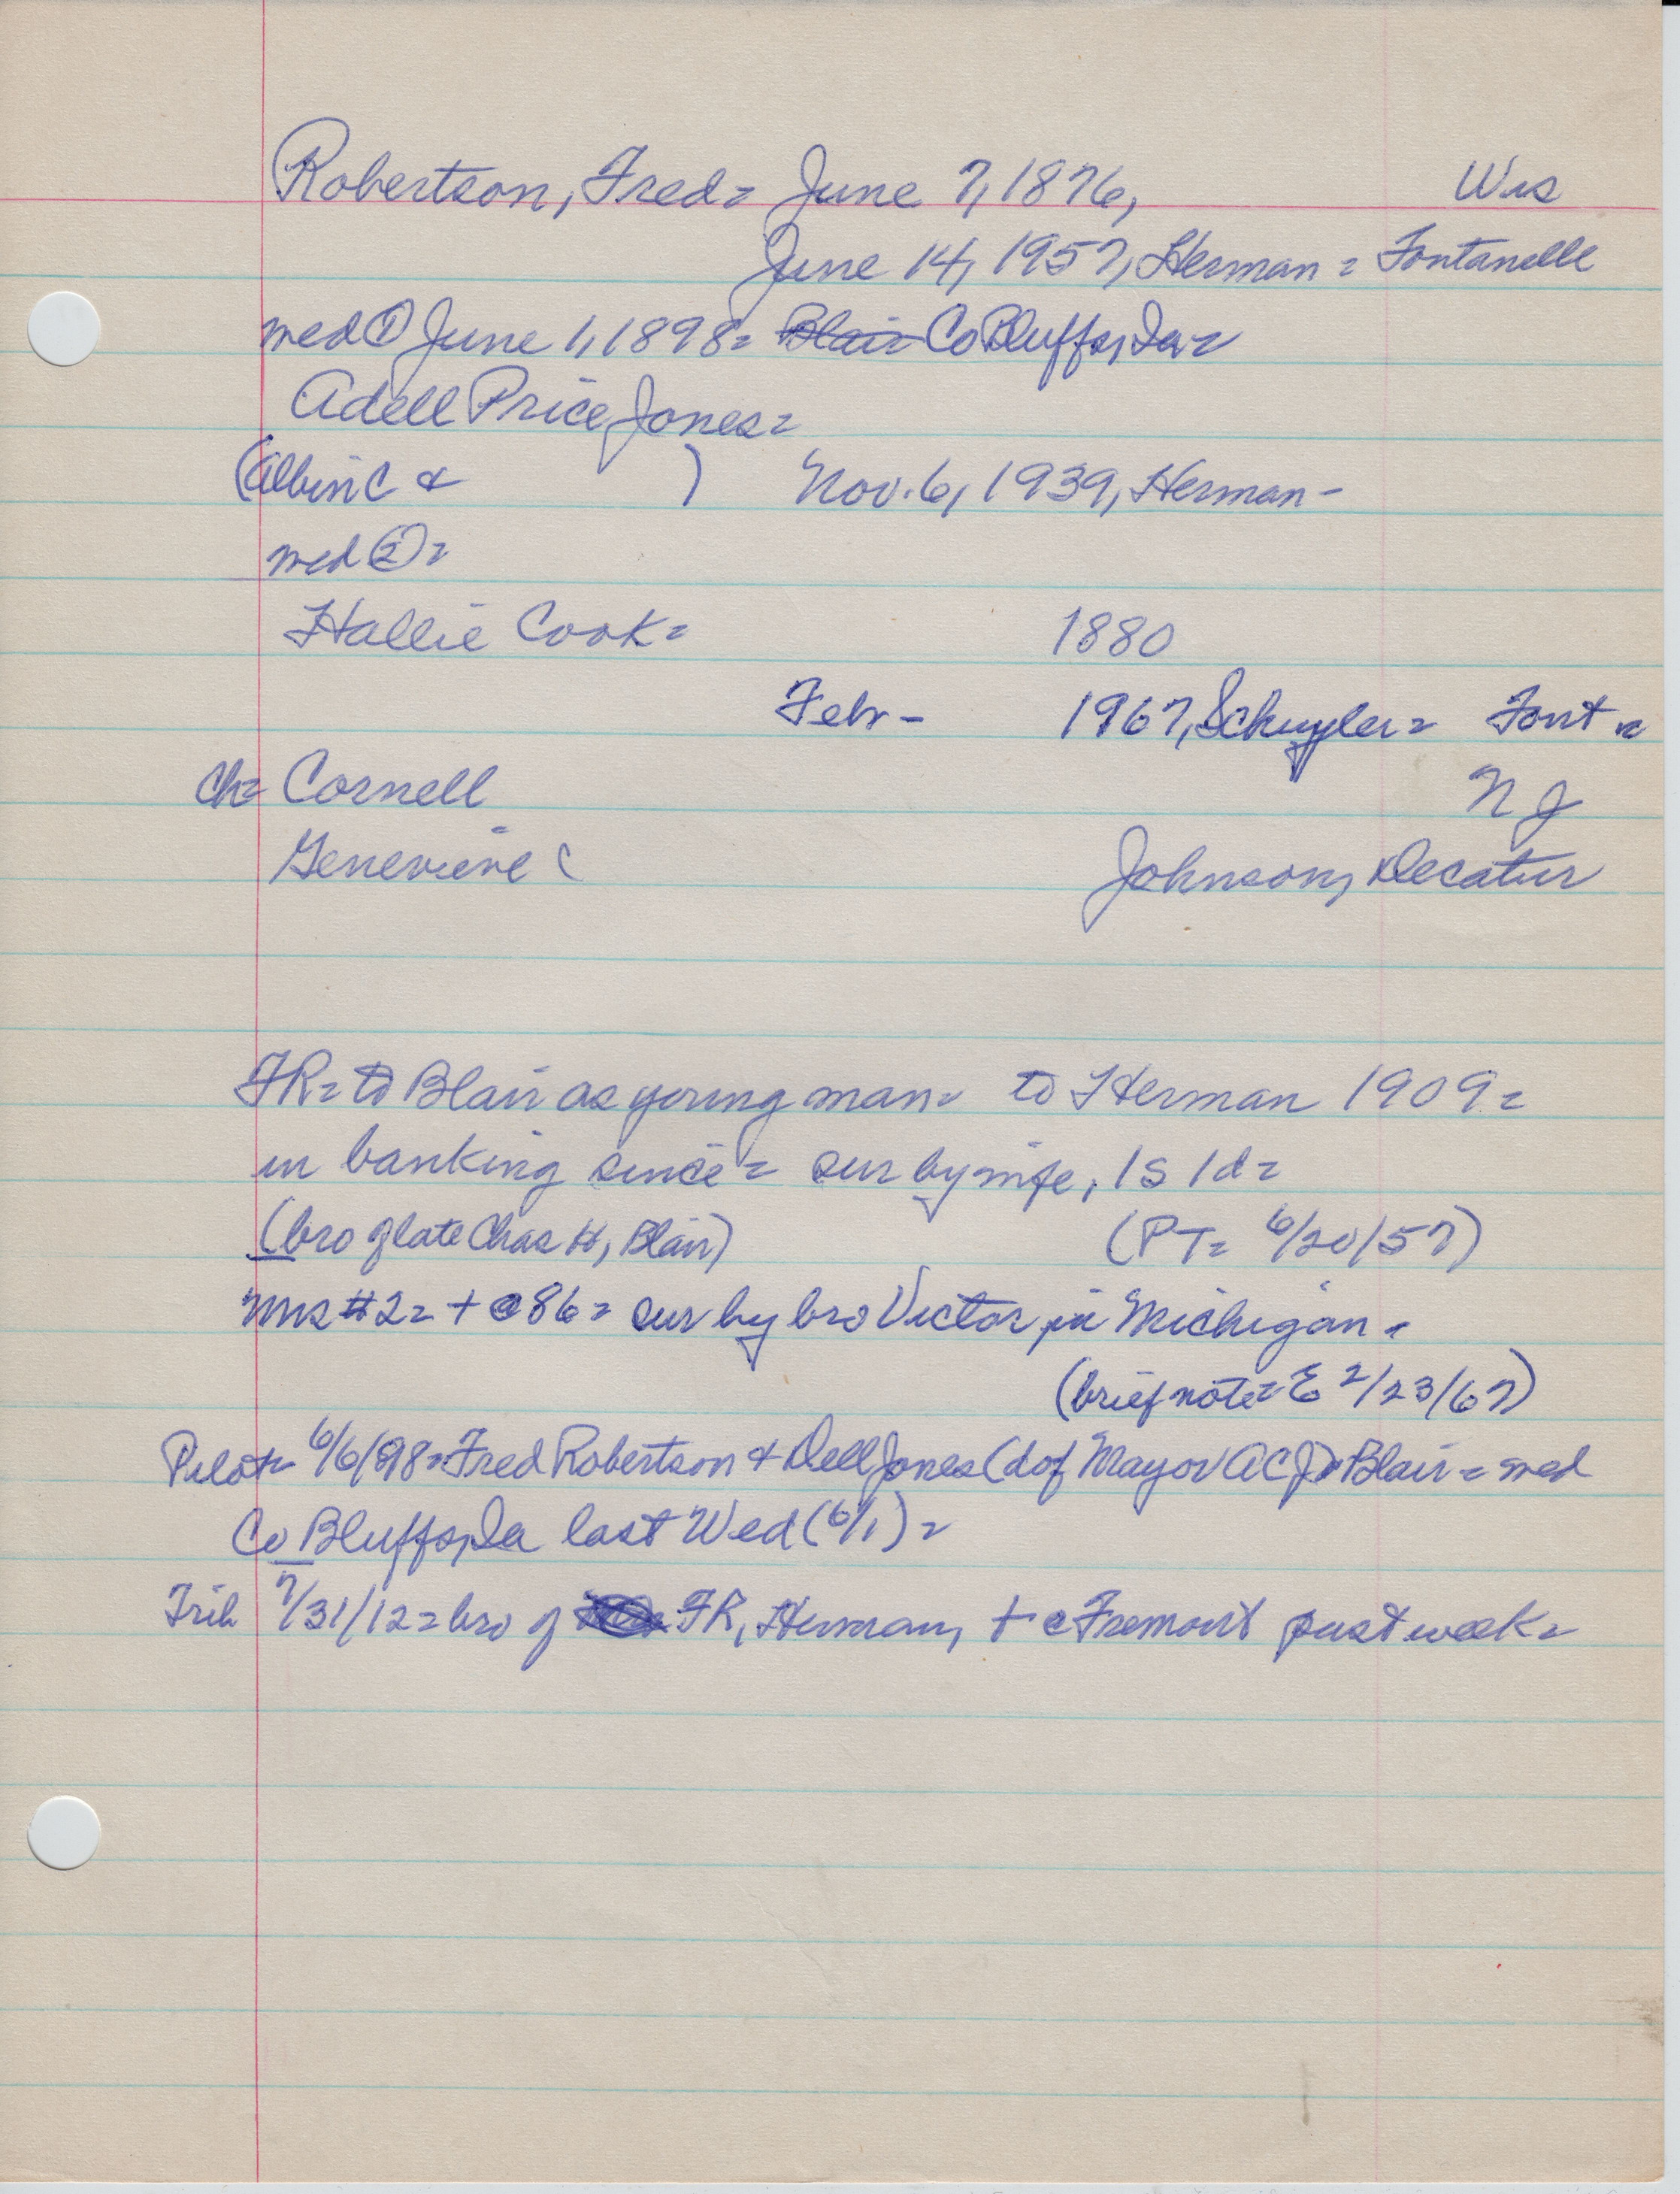 Robertson, Fred= June 7, 1876, Wis
June 14, 1957, Herman = Fontanelle
med ① June 1, 1898= Blair Co Bluffs, Ia=
Adell Price Jones=
(Albin C & ) Nov. 6, 1939, Herman-
med ②=
Hallie Cook= 1880
Febr - 1967, Schuyler= Font =
Ch= Cornell N J
Genevieve C Johnson, Decatur
FR= to Blair as young man= to Herman 1909=
in banking since= sur by wife, 1s 1d=
(bro of late Chas H, Blair) (PT= 6/20/57)
Mrs #2= + @86= sur by bro Victor in Michigan=
(brief note= E 2/23/67)
Pilot= 6/6/98= Fred Robertson & Dell Jones (d of Mayor ACJ) Blair= med
Co Bluffs, Ia last Wed (6/1)=
Trib 7/31/12= bro of FR, Herman, + @ Fremont past week=